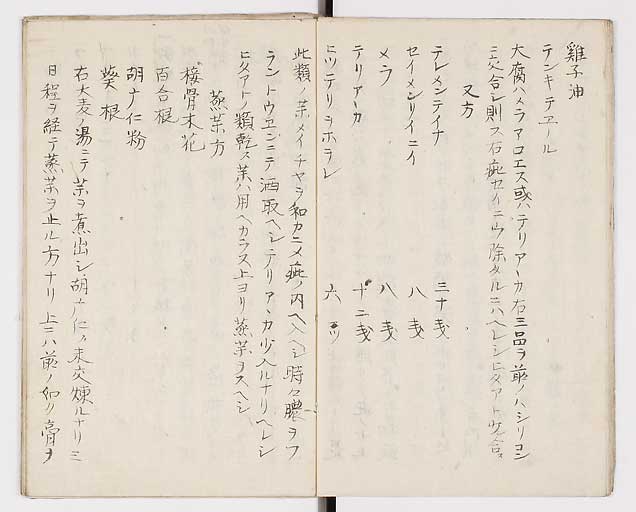 雞子油
テンキテヱール
大腐ハメラアロエス或ハテリアーカ右三品ヲ前ノハシリコン
ニ交合シ則ス石疵セイニウ除タルニハヘレシヒタアト
又方
テレメンテイナ 三十戔
セイメンリイニイ 八戔
メラ 八戔
テリアーカ 十二戔
ヒツテリヲホラレ 六ツ
此類ノ茉メイチヤヲ和カニメ疵ノ内ヘ入ヘシ時々膿ヲフ
ラントウヱンニテ洒取ヘシテリアーカ少入ルナリヘレシ
ヒタアトノ類乾ス茉ハ用ヘカラス上ヨリ蒸茉ヲスヘシ
蒸茉方
接骨木花
百合根
胡ナ仁粉
葵根
右大麦ノ湯ニテ茉ヲ煮出シ胡ナ仁ノ末交煉ルナリ三
日程ヲ経テ蒸茉ヲ止ル方ナリ上ニハ前ノ如ク膏ヲ